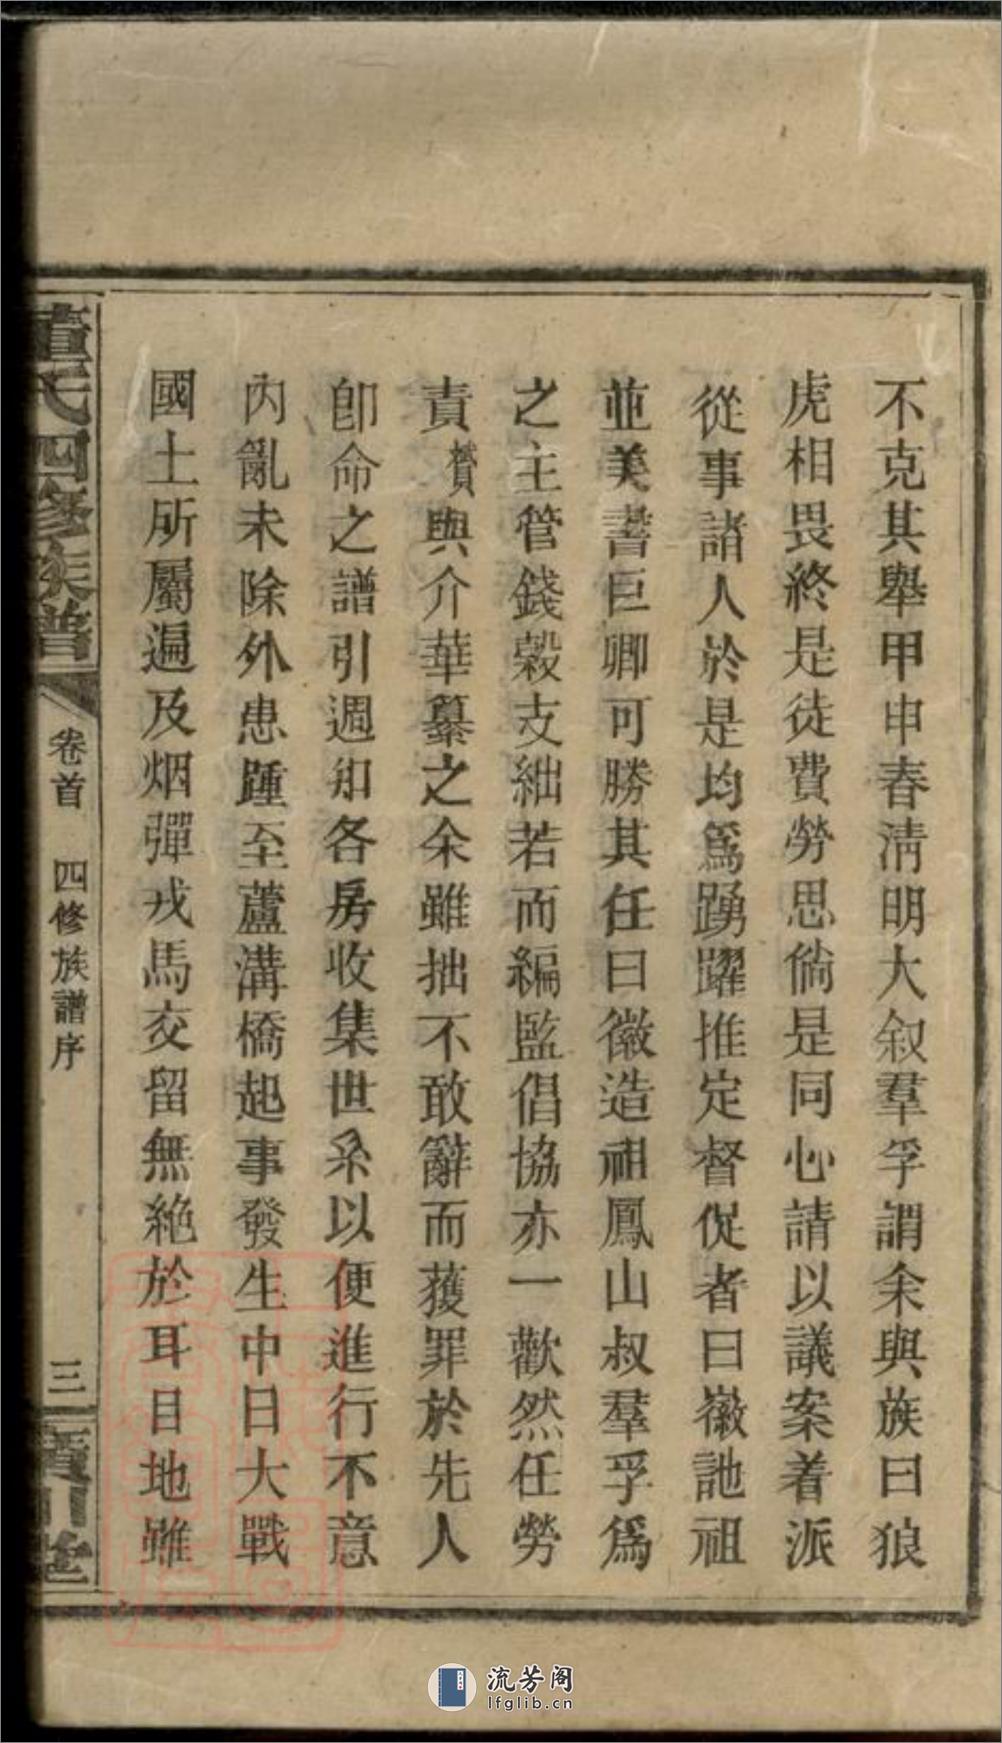 不克其舉甲申春淸明大叙羣孚謂余與族曰狼
虎相畏終是徒費勞思倘是同心請以議案着派
從事諸人於是均爲踴躍推定督促者曰嶶訑祖
並美書巨卿可勝其任曰徽造祖鳳山叔羣孚爲
之主管錢穀支絀若而編監倡協亦一歡然任勞
責贊與介華纂之余雖拙不敢辭而獲罪於先人
卽命之譜引週知各房收集世系以便進行不意
內亂未除外患踵至蘆溝橋起事發生中日大戰
國土所屬遍及烟彈戎馬交留無絶於耳目地雖
董氏四修族譜
卷首 四修族譜序
三
廣川堂
流芳阁
lfglib.cn